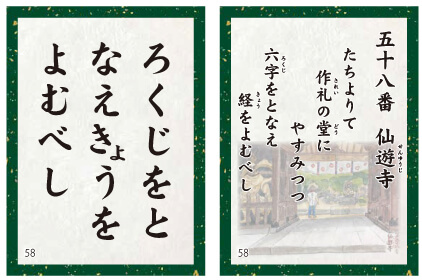 ろくじをと
なえきょうを
よむべし
58
五十八番 仙遊寺
せんゆうじ
たちよりて
作礼の堂に
されい どう
やすみつつ
六字をとなえ
ろくじ
経をよむべし
きょう
58